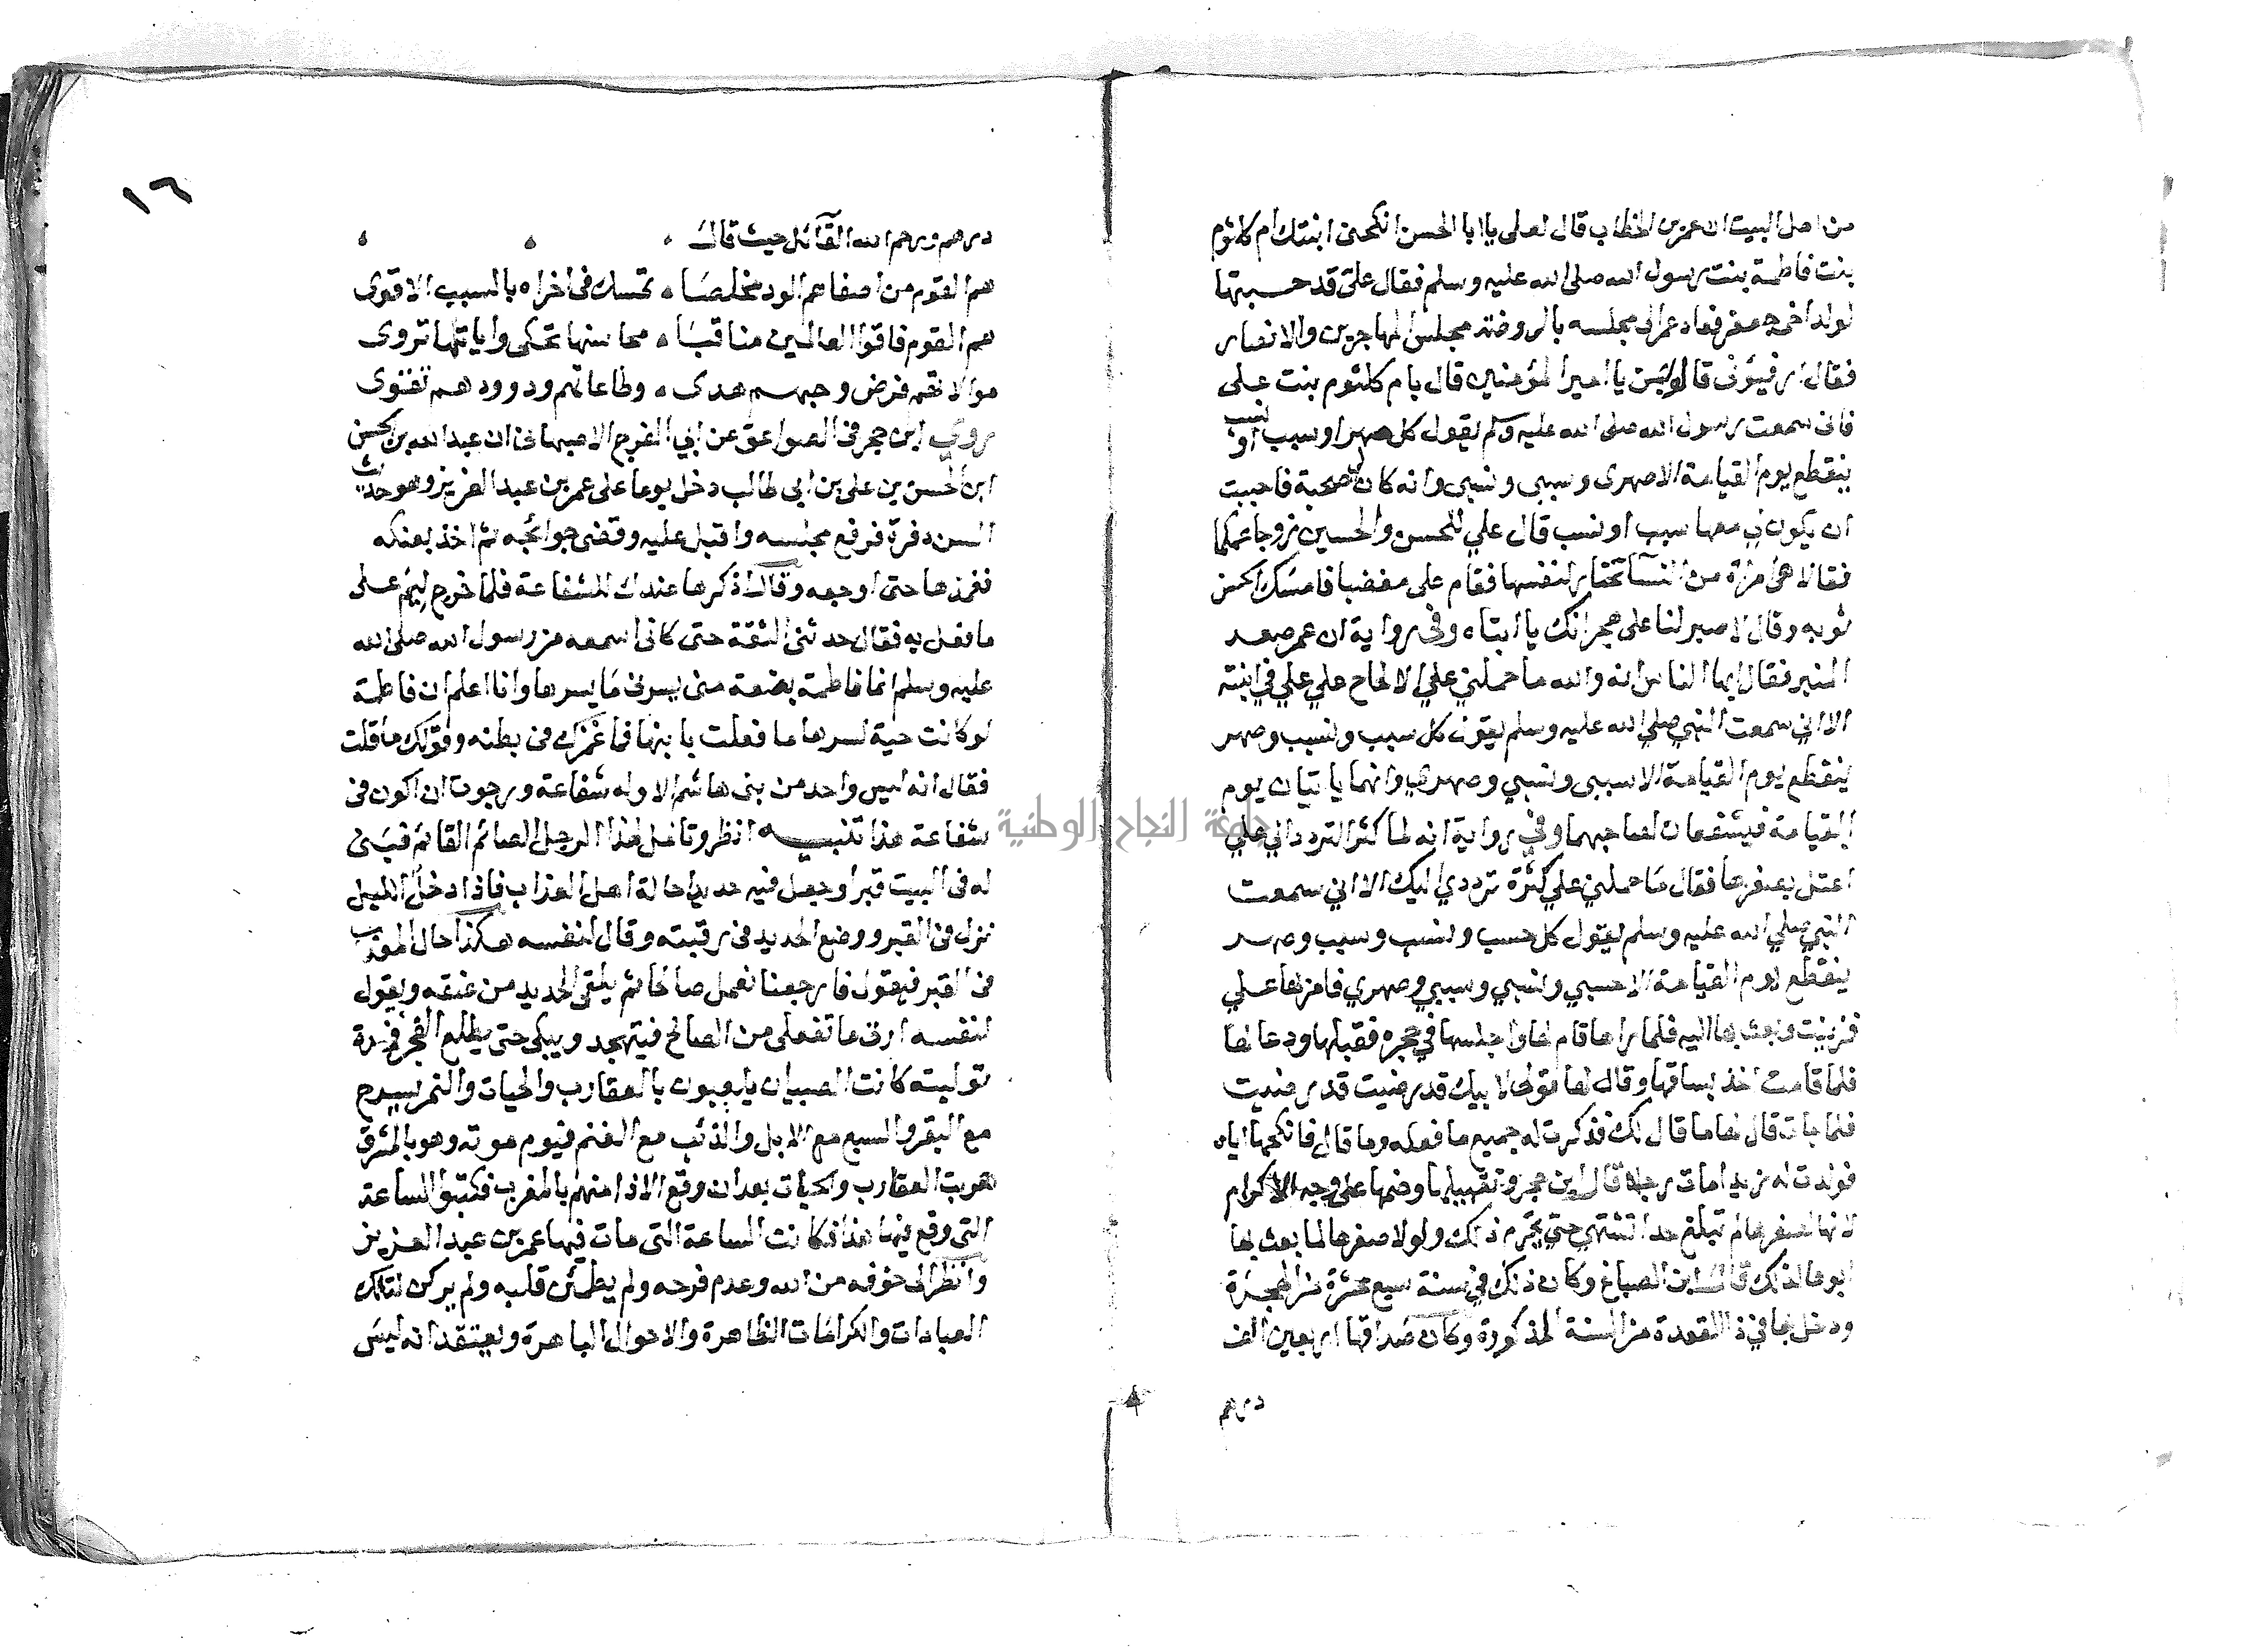 من اهل البيت ان عمر بن الخطاب قال لعلى يا ابا الحسن انكحنى ابنتك ام كلثوم
بنت فاطمة بنت رسول الله صلى الله عليه وسلم فقال على قد حسبتها
لولد اخى جعفر فعاد عمر الى مجلسه بالروضة مجلس المهاجرين والانصار
فقال رفيؤنى قالوا بمن يا امير المؤمنين قال بام كلثوم بنت على
فانى سمعت رسول الله صلى الله عليه وسلم يقول كل صهر او سبب او نسب
ينقطع يوم القيامة الا صهرى وسببى ونسبى وانه كان لى صحبة فاحببت
ان يكون لي معها سبب او نسب قال علي للحسن والحسين زوجا عمكما
فقالا هى امراة من النسآ تختار لنفسها فقام على مغضبا فامسك الحسن
ثوبه وقال لا صبر لنا على هجرانك يا ابتاه وفى رواية ان عمر صعد
المنبر فقال ايها الناس انه والله ما حملني علي الالحاح علي علي في ابنته
الا اني سمعت النبي صلي الله عليه وسلم يقول كل سبب ونسب وصهر
ينقطع يوم القيامة الا سببى ونسبي وصهري وانهما ياتيان يوم
القيامة فيشفعان لصاحبهما وفي رواية انه لما كثر التردد الي علي
اعتل بصغرها فقال ما حملني علي كثرة ترددي اليك الا اني سمعت
النبي صلي الله عليه وسلم يقول كل حسب ونسب وسبب وصهر
ينقطع يوم القيامة الا حسبي ونسبي وسببي وصهري فامر لها علي
فزينت وبعث بها اليه فلما راها قام لها واجلسها في حجره فقبلها ودعا لها
فلما قامت اخذ بساقها وقال لها قولى لابيك قد رضيت قد رضيت
فلما جات قال لها ما قال لك فذكرت له جميع ما فعله وما قال فانكحها اياه
فولدت له زيد امات رجلا قال ابن حجر وتقبيلها وضمها على وجه الاكرام
لانها لصغرها لم تبلغ حدا تشتهى حتى يحرم ذلك ولولا صغرها لما بعث بها
ابوها لذلك قال ابن الصباغ وكان ذلك في سنة سبع عشرة من الهجرة
ودخل بها في ذا القعدة من السنة المذكورة وكان صداقها اربعين الف
درهم
١٦
درهم ورحم الله القآئل حيث قال
هم القوم من اصفاهم الود مخلصا ۰ تمسك فى اخراه بالسبب الاقوى
هم القوم فاقوا العالمين مناقبا ۰ محاسنها تحكى واياتها تروى
موالاتهم فرض وحبهم هدى ۰ وطاعاتهم ود وودهم تقوى
روي ابن حجر فى الصواعق عن ابي الفرج الاصبهانى ان عبد الله بن الحسن
ابن الحسن بن على بن ابي طالب دخل يوما على عمر بن عبد العزيز وهو حديث
السن وفرة فرفع مجلسه واقبل عليه وقضى حوائجه ثم اخذ بعنكه
فغمزها حتى اوجعه وقال اذكرها عندك للشفاعة فلما خرج ليم على
ما فعل به فقال حدثنى الثقة حتى كانى اسمعه من رسول الله صلى الله
عليه وسلم انما فاطمة بضعة منى يسرنى ما يسرها وانا اعلم ان فاطمة
لو كانت حية لسرها ما فعلت بابنها فما غمزك فى بطنه وقولك ما قلت
فقال انه ليس واحد من بنى هاشم الا وله شفاعة ورجوت ان اكون فى
شفاعة هذا تنبيه انظر وتامل لهذا الرجل الصائم القائم فبنى
له فى البيت قبرا وجعل فيه حديدا حالة اهل العذاب فاذا دخل الليل
نزل فى القبر ووضع الحديد فى رقبته وقال لنفسه هكذا حال المعذب
فى القبر فيقول فارجعنا نعمل صالحا ثم يلقى الحديد من عنقه ويقول
لنفسه ارنى ما تفعلى من الصالح فيتهجد ويبكى حتى يطلع الفجر فى مدة
توليته كانت الصبيان يلعبون بالعقارب والحيات والنمر يسرح
مع البقر والسبع مع الابل والذئب مع الغنم فيوم موته وهو بالمشرق
هربت العقارب والحيات بعد ان وقع الاذا منهم بالمغرب فكتبوا الساعة
التى وقع فيها هذا فكانت الساعة التى مات فيها عمر بن عبد العزيز
وانظر الى خوفه من الله وعدم فرحه ولم يطمئن قلبه ولم يركن لتلك
العبادات والكرامات الظاهرة والاحوال الباهرة ويعتقد انه ليس
جامعة النجاح الوطنية